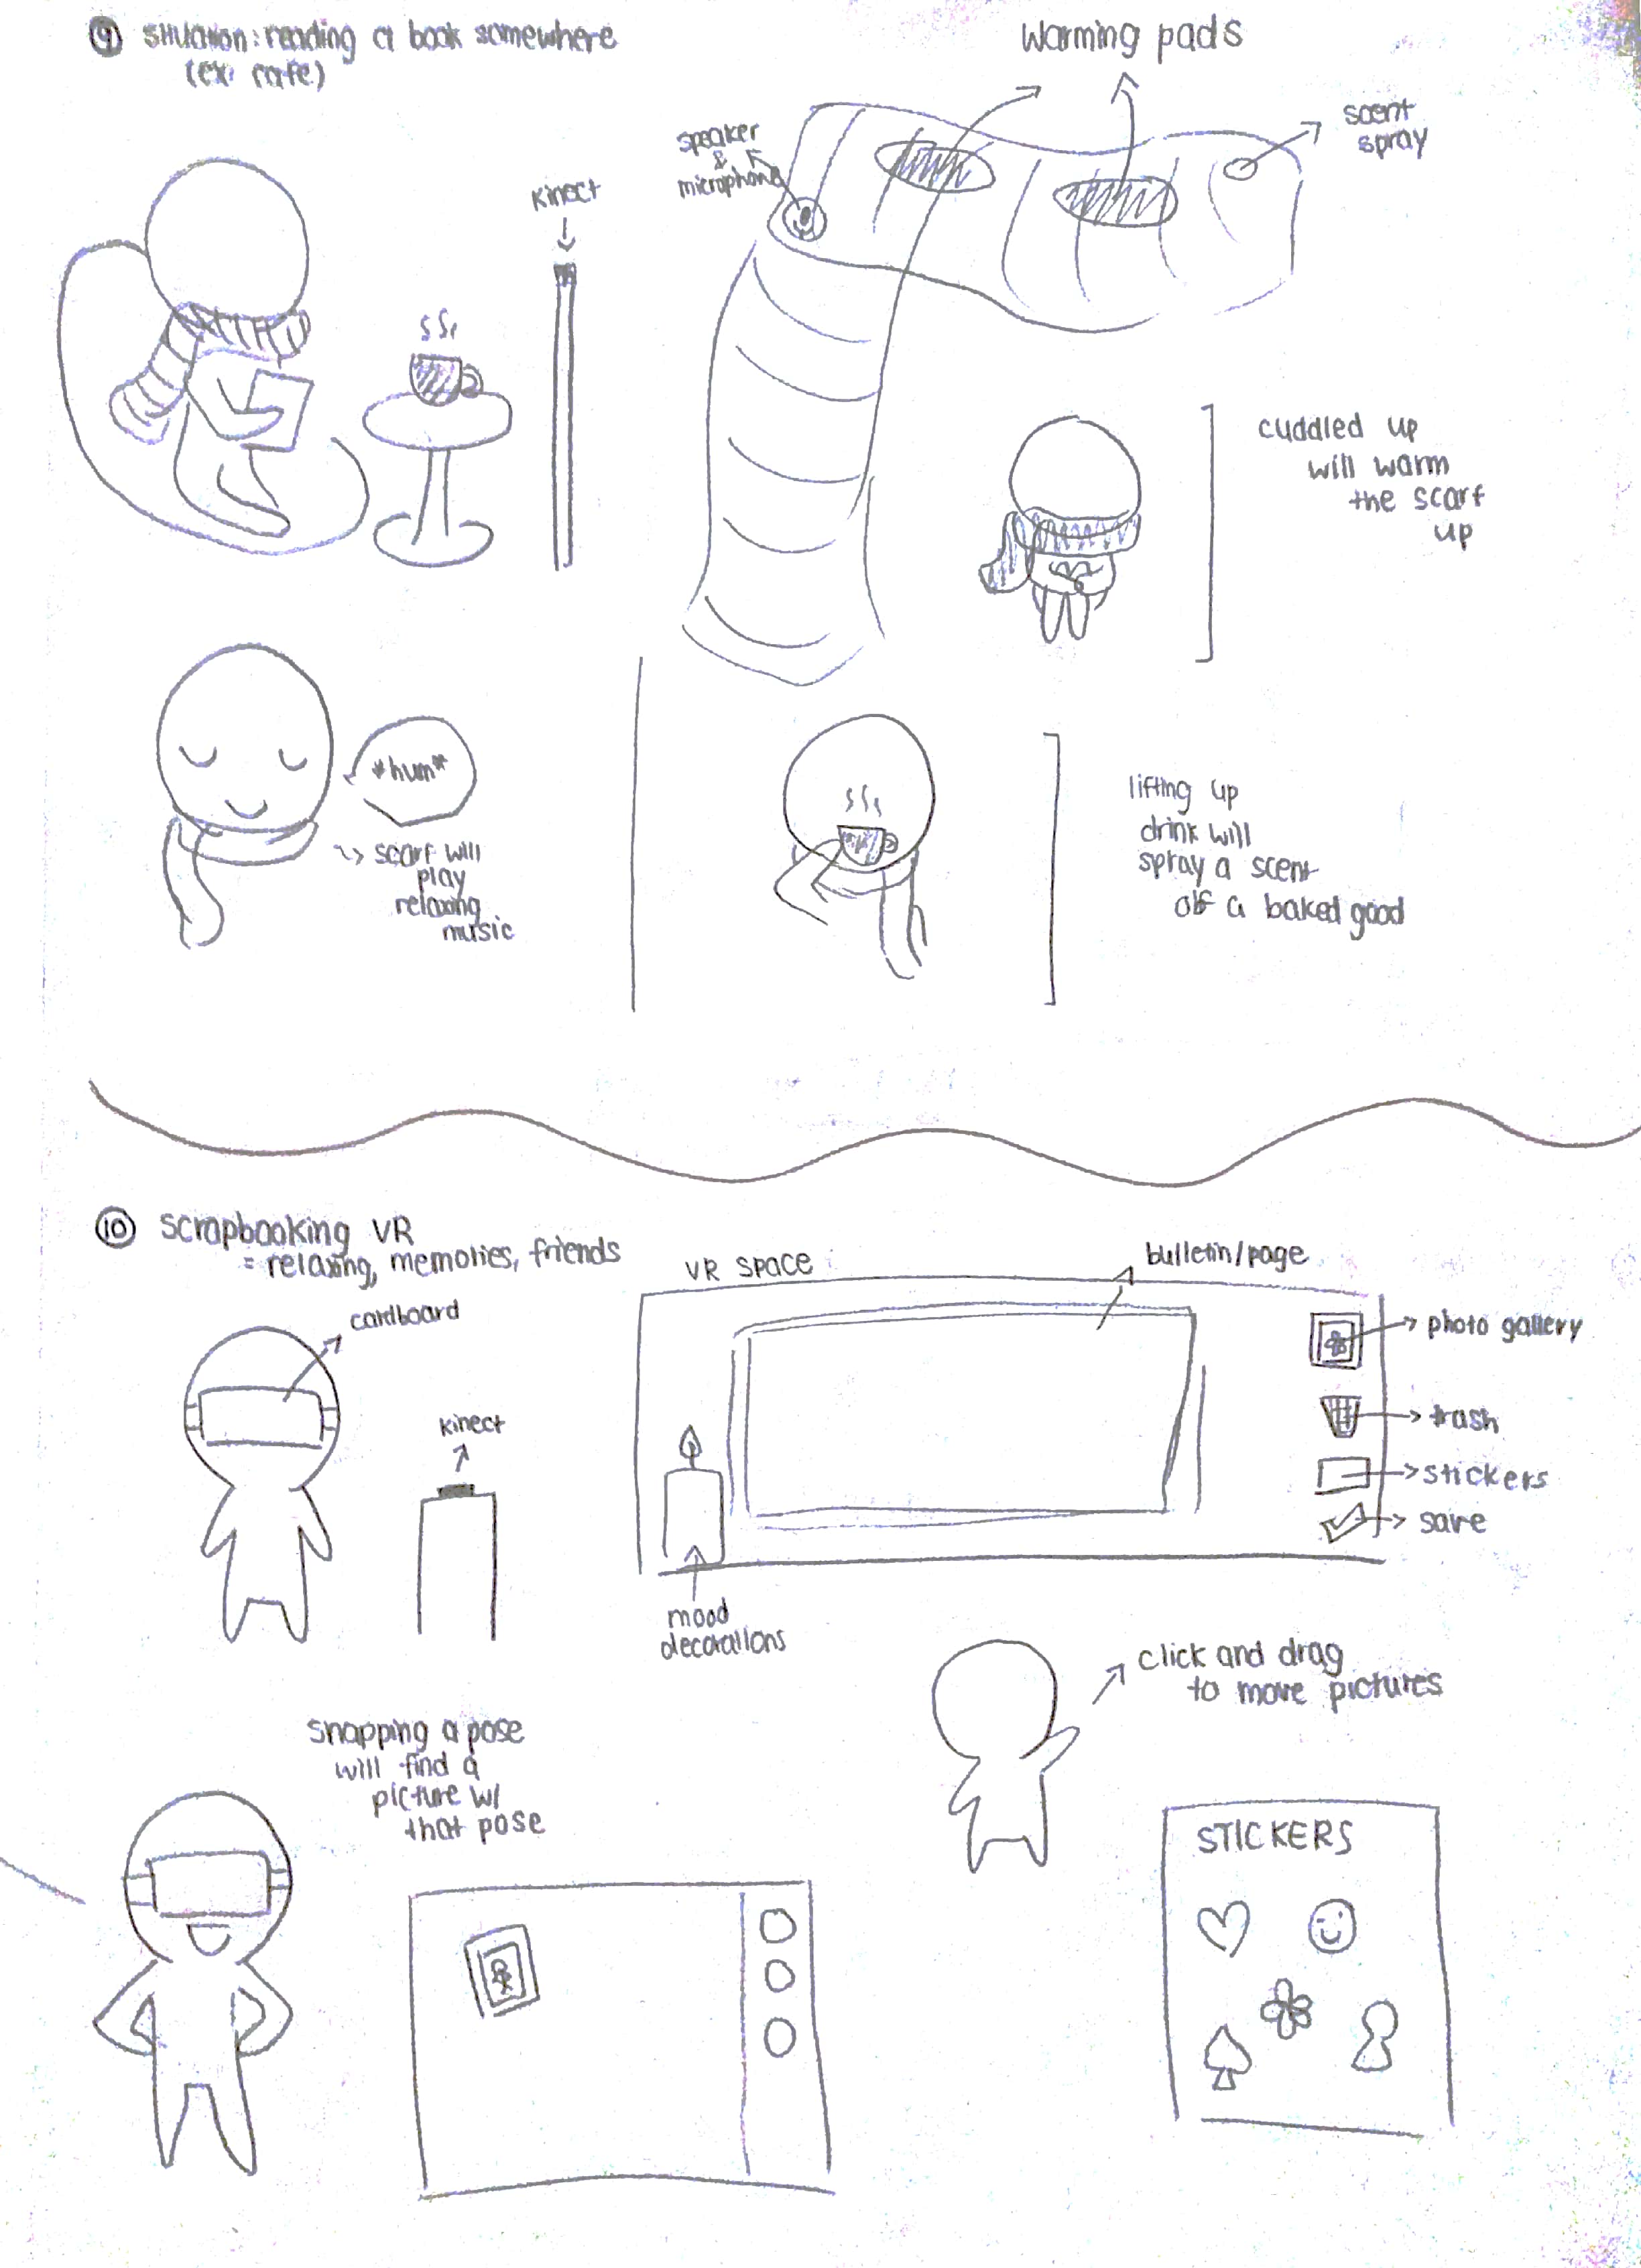 9 situation: reading a book somewhere
(ex: cafe)
Kinect
speaker
&
microphone
warming pads
scent
spray
cuddled up
will warm
the scarf
up
*hum*
scarf will
play
relaxing
music
lifting up
drink will
spray a scent
of a baked good
10 scrapbooking VR
= relaxing, memories, friends
cardboard
Kinect
VR SPACE:
bulletin/page
photo gallery
trash
stickers
save
mood
decorations
click and drag
to move pictures
snapping a pose
will find a
picture w/
that pose
STICKERS